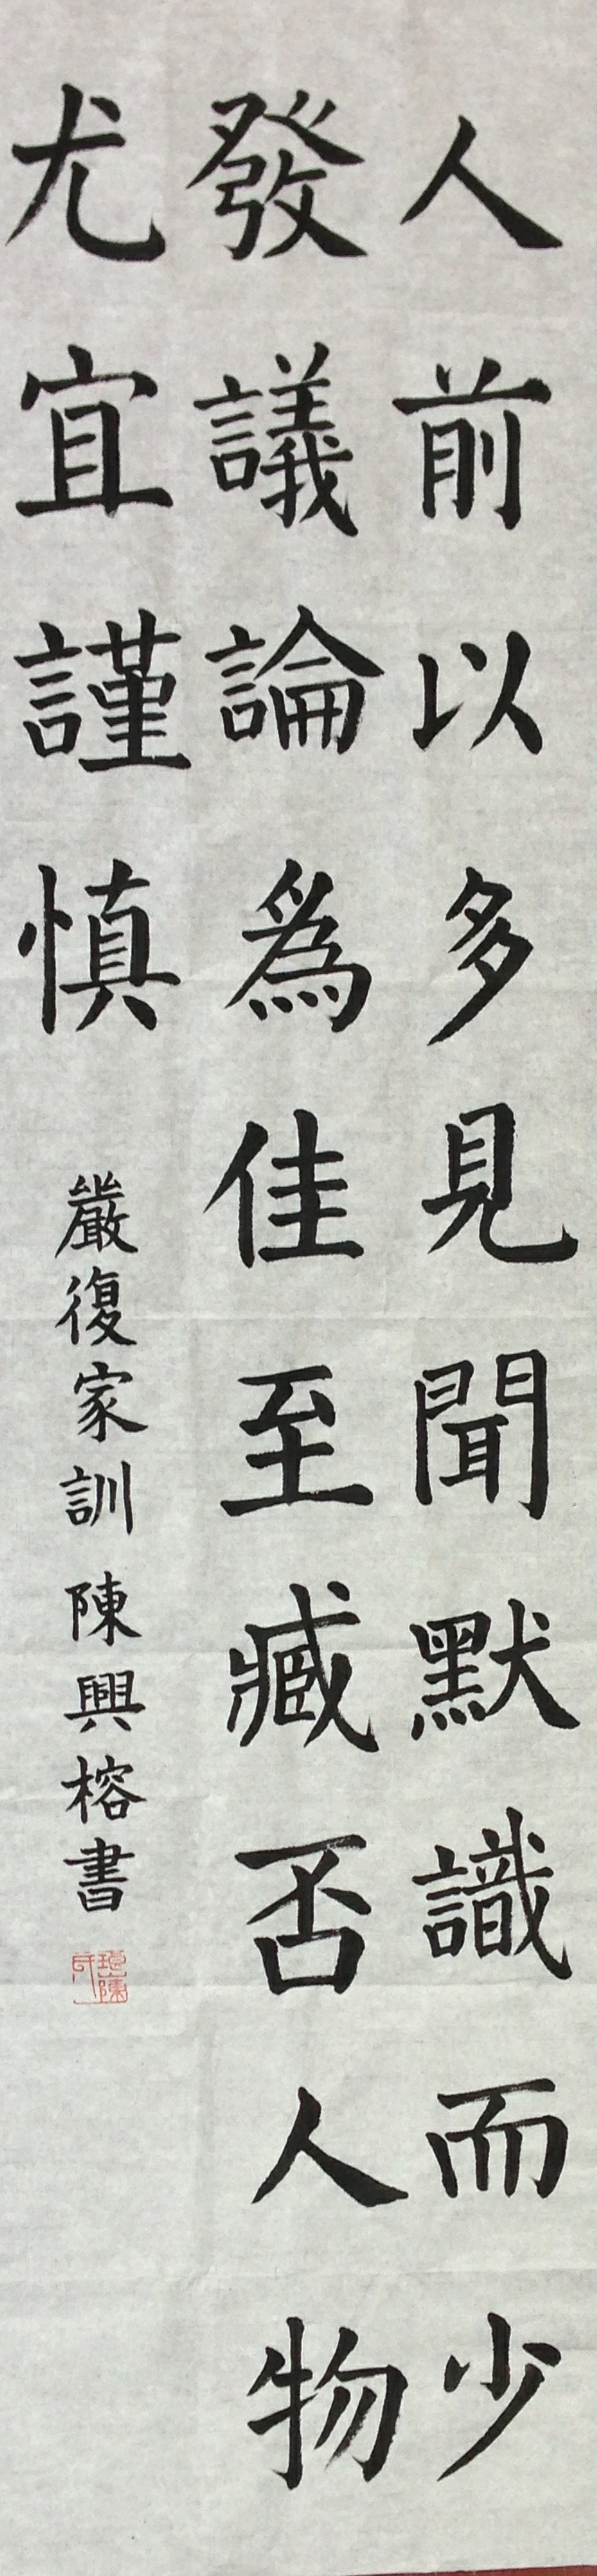 人前以多見聞默識而少
發議論為佳至臧否人物
尤宜謹慎
嚴復家訓 陳興榕書